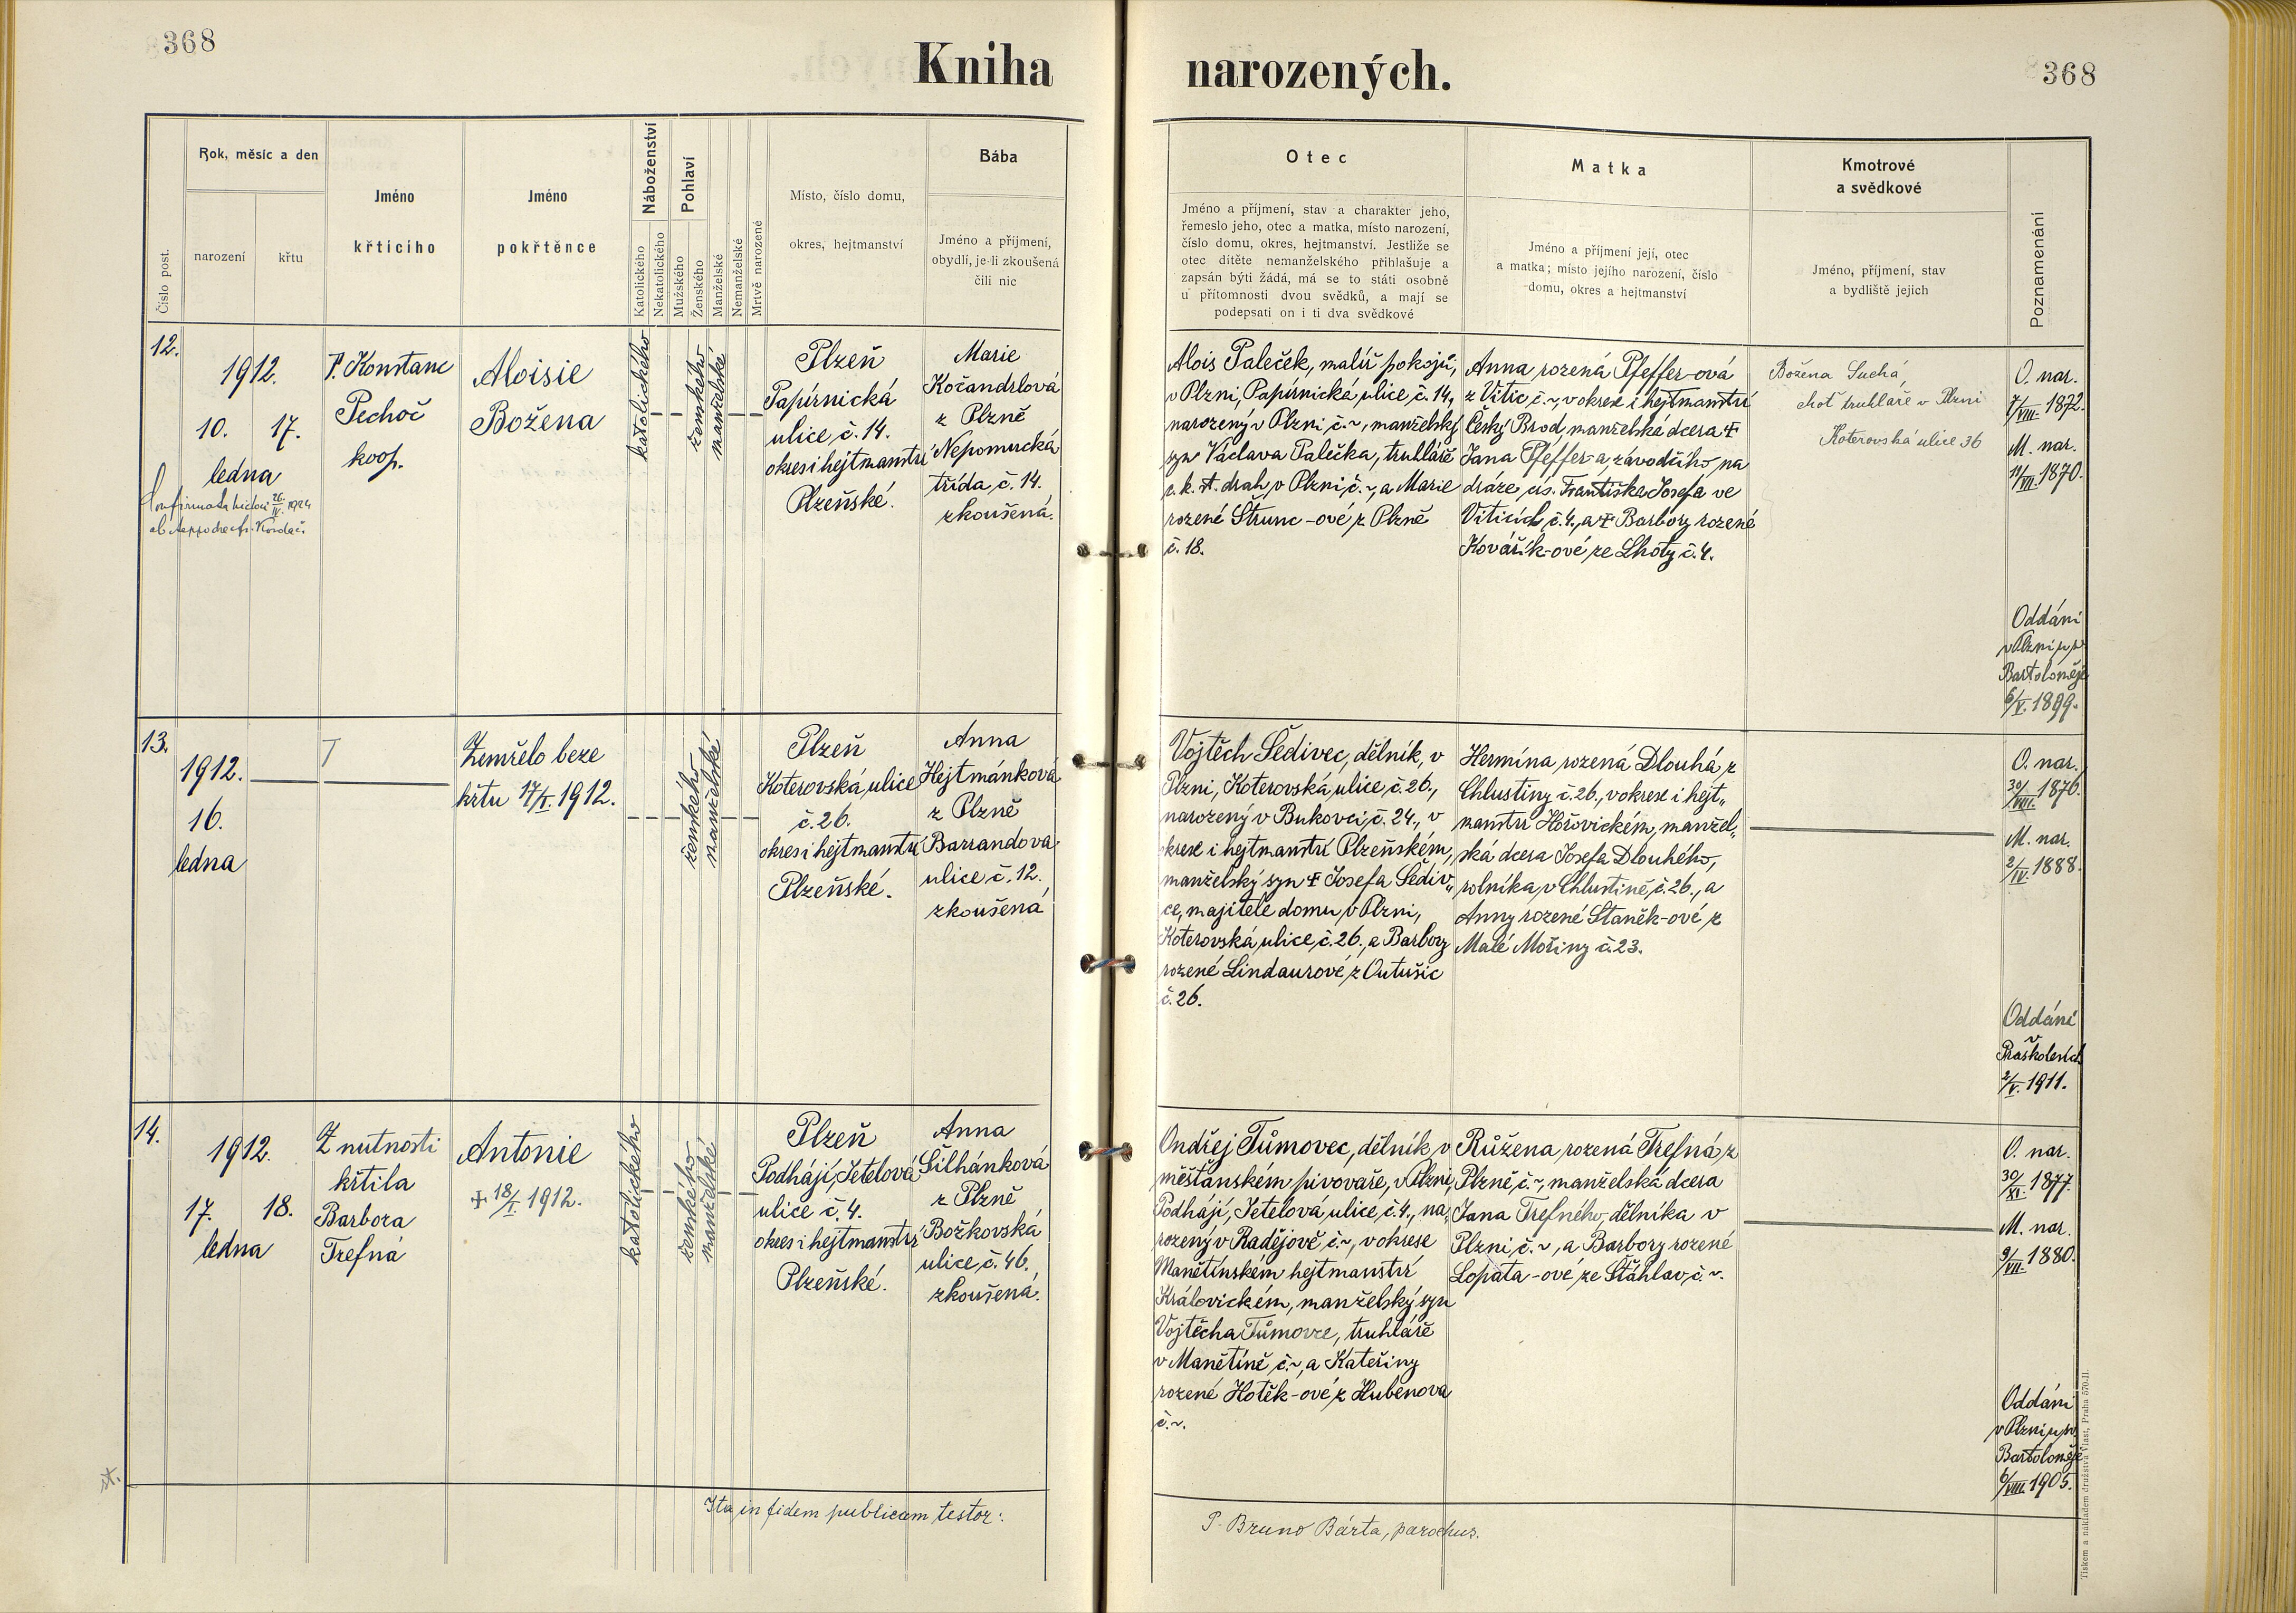 368
Kniha
narozených.
368
Číslo post.
Rok, měsíc a den
narození
křtu
Jméno
křtícího
Jméno
pokřtěnce
Náboženství
Katolického
Nekatolického
Pohlaví
Mužského
Ženského
Manželské
Nemanželské
Mrtvě narozené
Místo, číslo domu,
okres, hejtmanství
Bába
Jméno a příjmení,
obydlí, je-li zkoušená
čili nic
Otec
Jméno a příjmení, stav a charakter jeho,
řemeslo jeho, otec a matka, místo narození,
číslo domu, okres, hejtmanství. Jestliže se
otec dítěte nemanželského přihlašuje a
zapsán býti žádá, má se to státi osobně
u přítomnosti dvou svědků, a mají se
podepsati on i ti dva svědkové
Matka
Jméno a příjmení její, otec
a matka; místo jejího narození, číslo
domu, okres a hejtmanství
Kmotrové
a svědkové
Jméno, příjmení, stav
a bydliště jejich
Poznamenání
12.
1912.
10. 17.
ledna
26./IV. 1924
P. Konstanc
Pechoč
koop.
Aloisie
Božena
katolického
ženského
manželské
Plzeň
Papírnická
ulice č. 14.
okres i hejtmanství
Plzeňské.
Marie
Kočandrlová
z Plzně
Nepomucká
třída č. 14.
zkoušená.
Alois Paleček, malíř pokojů,
v Plzni, Papírnická ulice č. 14,
narozený v Plzni č. ~, manželský
syn Václava Palečka, truhláře
c. k. st. drah v Plzni č. ~, a Marie
rozené Štrunc-ové z Plzně
č. 18.
Anna rozená Pfeffer-ová
z Vitic č. ~, v okrese i hejtmanství
Český Brod, manželská dcera †
Jana Pfeffer-a, závodčího na
dráze cís. Františka Josefa ve
Viticích č. 4., a † Barbory rozené
Kovářík-ové ze Lhoty č. 4.
Božena Suchá,
choť truhláře v Plzni
Koterovská ulice 36
O. nar.
7/VIII. 1872.
M. nar.
11/VII. 1870.
Oddáni
v Plzni u sv.
Bartoloměje
6/V. 1899.
13.
1912.
16.
ledna
Zemřelo beze
křtu 17/I. 1912.
ženského
manželské
Plzeň
Koterovská ulice
č. 26.
okres i hejtmanství
Plzeňské.
Anna
Hejtmánková
z Plzně
Barrandova
ulice č. 12.
zkoušená
Vojtěch Šedivec, dělník, v
Plzni, Koterovská ulice č. 26.,
narozený v Bukovci č. 24., v
okrese i hejtmanství Plzeňském,
manželský syn † Josefa Šediv„
ce, majitele domu v Plzni,
Koterovská ulice č. 26., a Barbory
rozené Lindaurové z Outušic
č. 26.
Hermína rozená Dlouhá z
Chlustiny č. 26., v okrese i hejt„
manství Hořovickém, manžel„
ská dcera Josefa Dlouhého,
rolníka v Chlustině č. 26., a
Anny rozené Staněk-ové z
Malé Mořiny č. 23.
O. nar.
30/VIII. 1876.
M. nar.
2/IV. 1888.
Oddáni
v
Praskolesích
2/V. 1911.
14.
1912.
17. 18.
ledna
Z nutnosti
křtila
Barbora
Trefná
Antonie
† 18/I. 1912.
katolického
ženského
manželské
Plzeň
Podhájí, Jetelová
ulice č. 4.
okres i hejtmanství
Plzeňské.
Anna
Šilhánková
z Plzně
Božkovská
ulice č. 46.
zkoušená.
Ondřej Tůmovec, dělník v
měšťanském pivovaře, v Plzni,
Podhájí, Jetelová ulice č. 4., na„
rozený v Radějově č. ~, v okrese
Manětínském hejtmanství
Královickém, manželský syn
Vojtěcha Tůmovce, truhláře
v Manětíně č. ~, a Kateřiny
rozené Hotěk-ové z Hubenova
č. ~.
Růžena rozená Trefná z
Plzně č. ~, manželská dcera
Jana Trefného, dělníka v
Plzni č. ~, a Barbory rozené
Lopata-ové ze Šťáhlav č. ~.
O. nar.
30/XI. 1877.
M. nar.
9/VII. 1880.
Oddáni
v Plzni u sv.
Bartoloměje
6/VIII. 1905.
Ita in fidem publicam testor:
P. Bruno Bárta, parochus.
Tiskem a nákladem družstva Vlast, Praha 570-II.